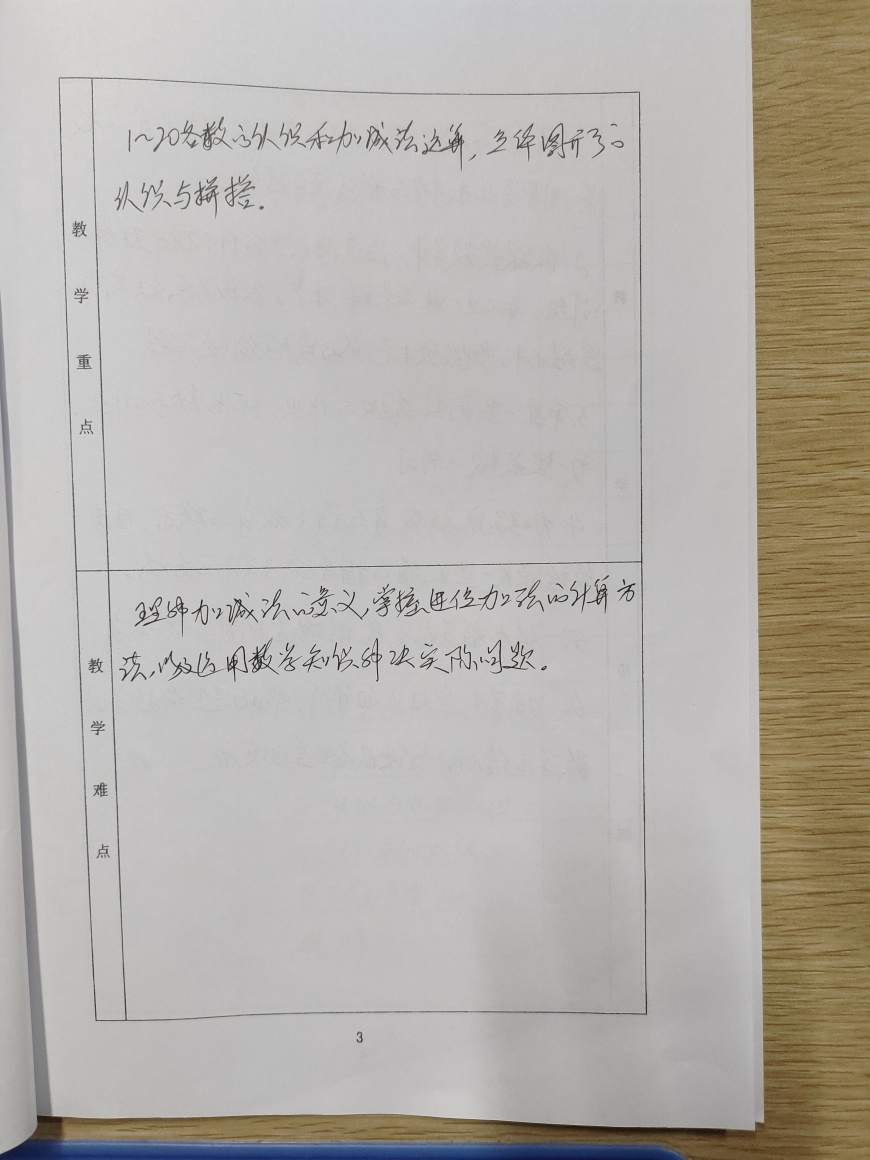 教学重点
1~20各数的认识和加减法运算，立体图形的
认识与拼搭。
教学难点
理解加减法的意义，掌握进位加法的计算方
法，以及运用数学知识解决实际问题。
3